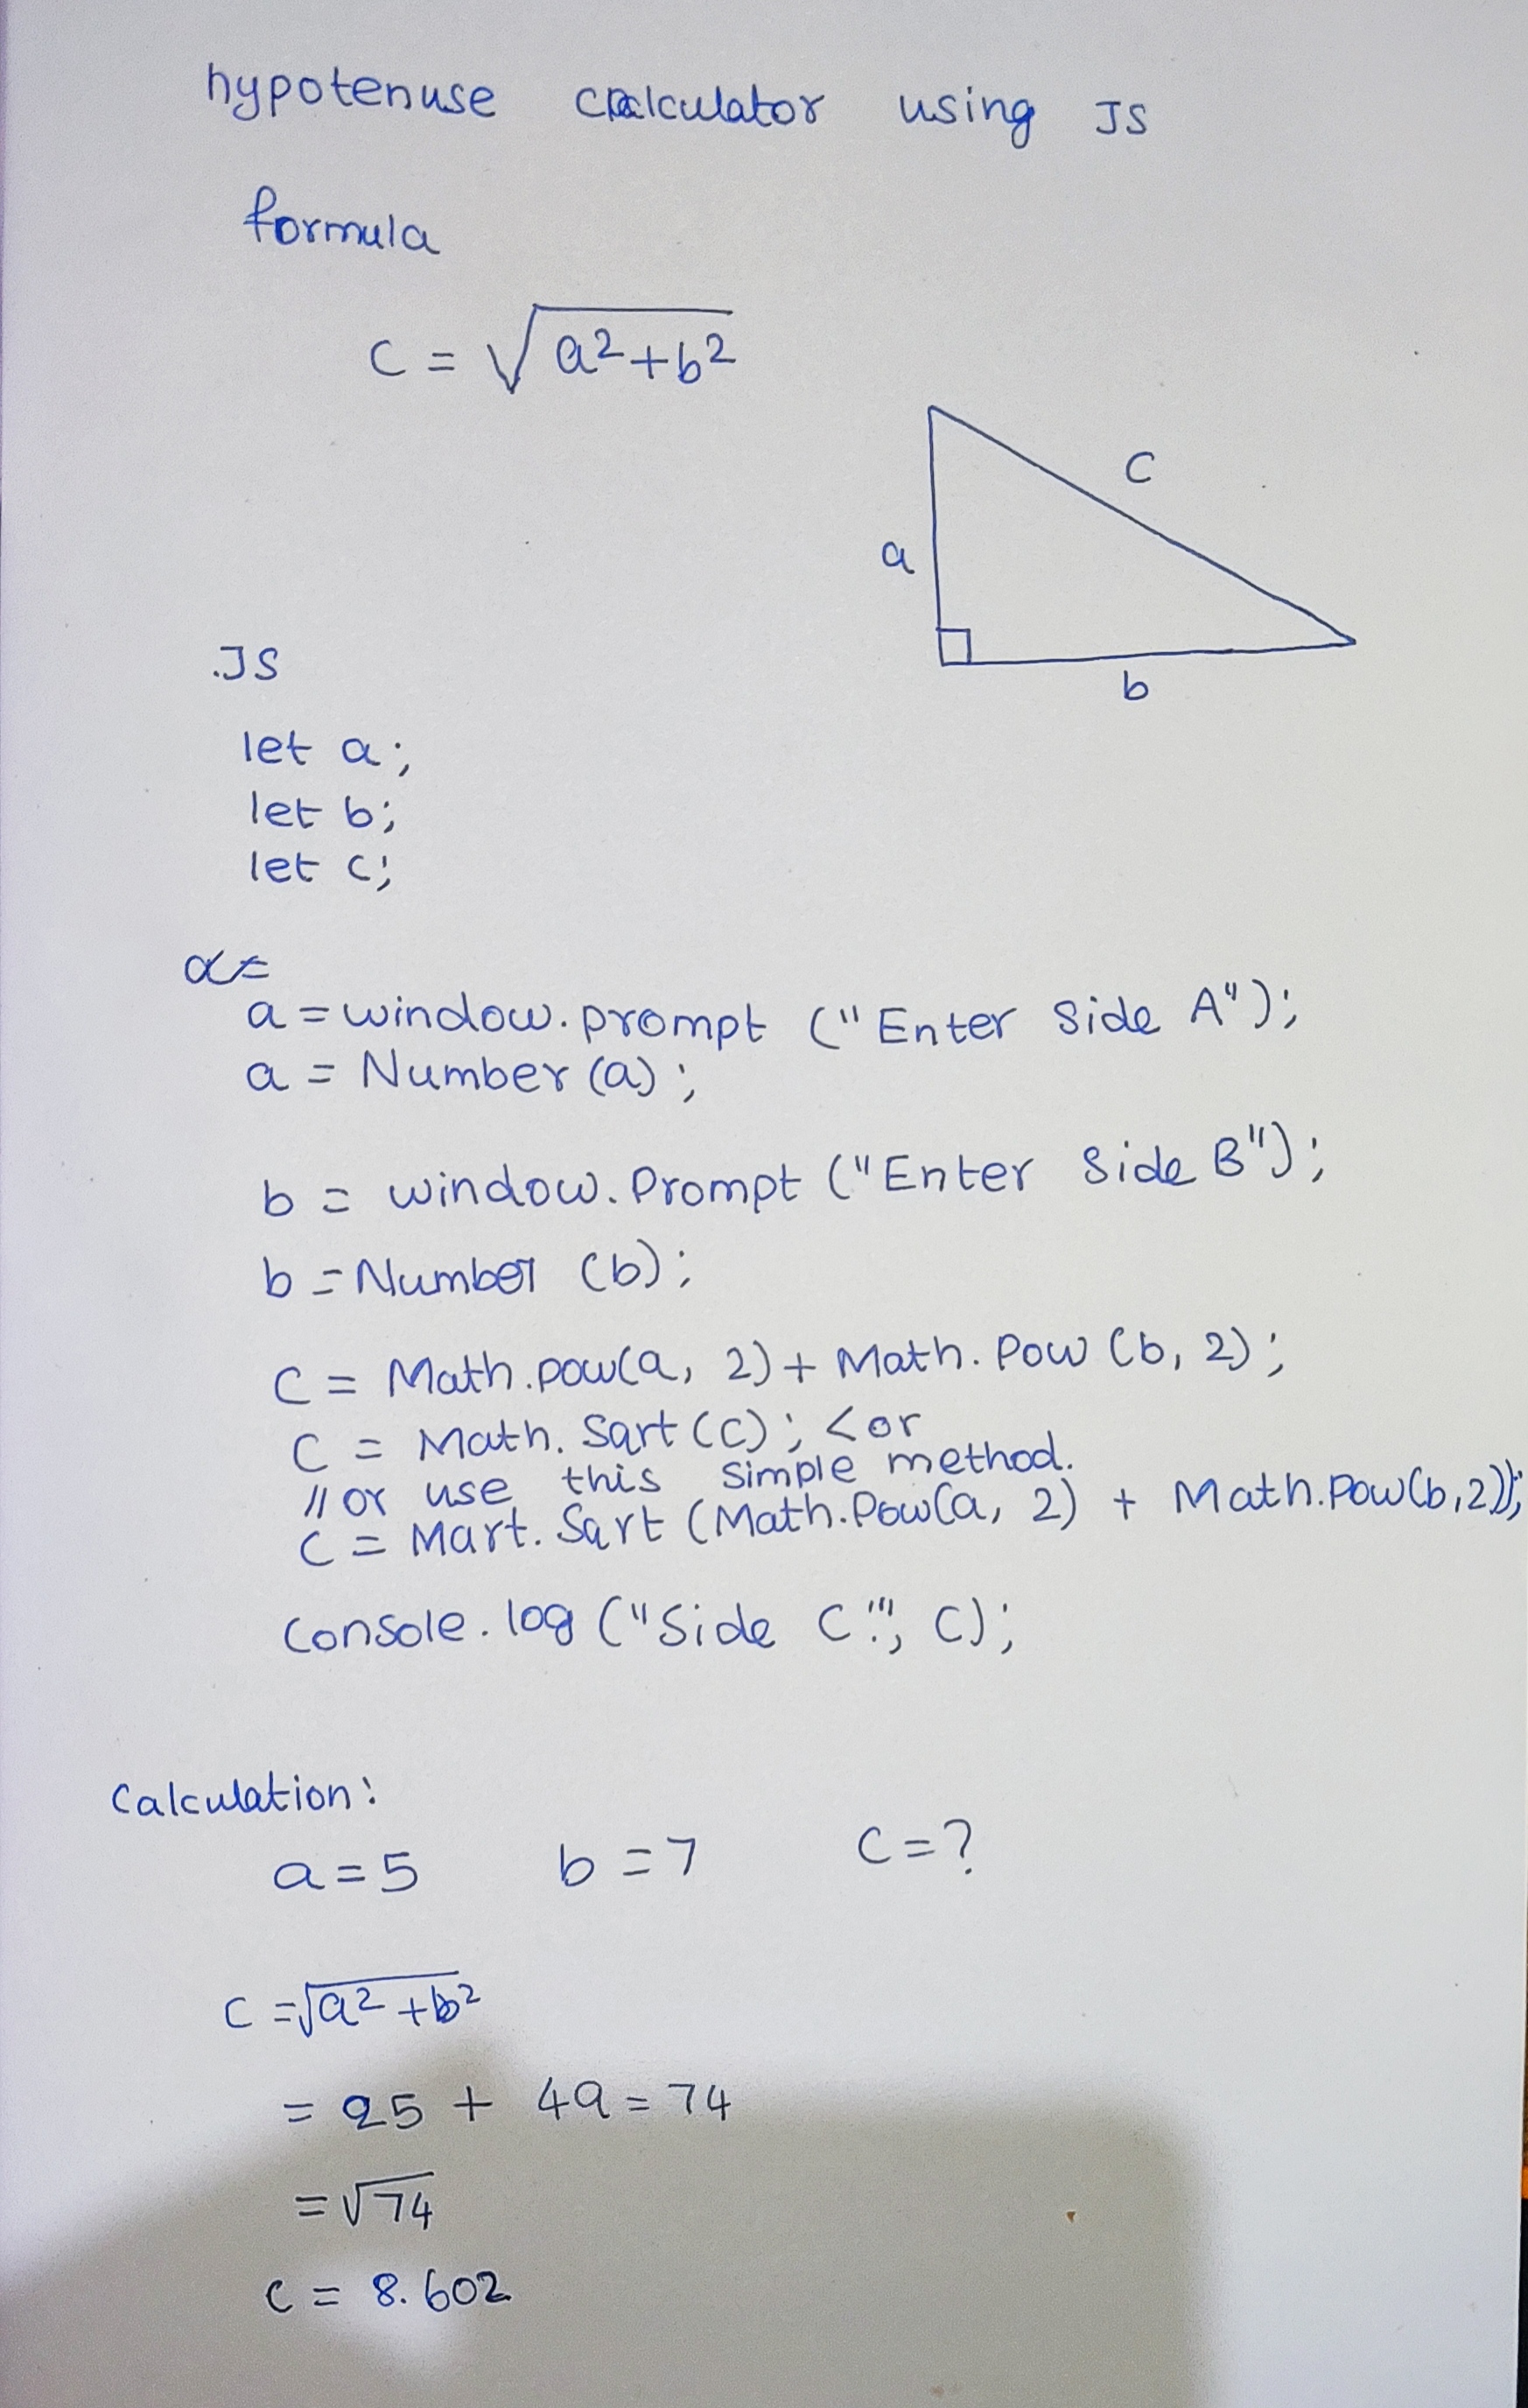 hypotenuse calculator using JS
formula
c = √a²+b²
c
a
b
.JS
let a;
let b;
let c;
a=
a = window.prompt ("Enter Side A");
a = Number (a);
b = window.Prompt ("Enter Side B");
b = Number (b);
C = Math.pow(a, 2) + Math.Pow (b, 2);
C = Math. Sqrt (c); <or
// or use this simple method.
C = Mart. Sqrt (Math.Pow(a, 2) + Math.Pow(b,2));
Console.log ("Side C:", C);
Calculation:
a = 5 b = 7 C = ?
C = √a² + b²
= 25 + 49 = 74
= √74
C = 8.602